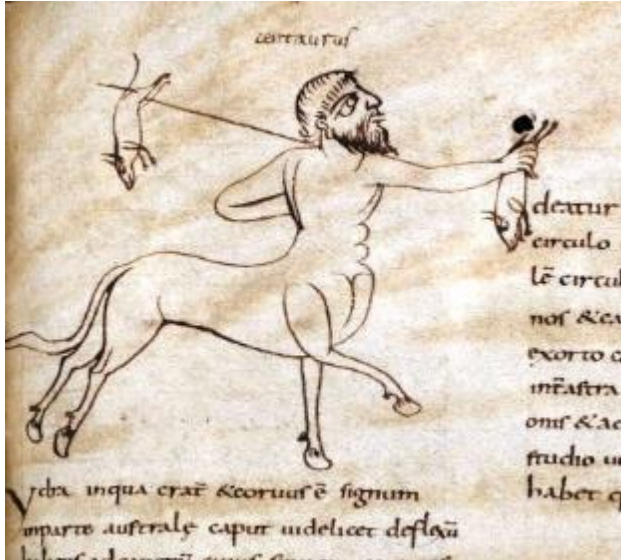 centaurus
deatur
circulo
lē circul
nos & ex
exorto c
onis & ae
studio u
habet q
ydra inqua crat̄ & coruus ē signum
inparte australe caput uidelicet deflexū